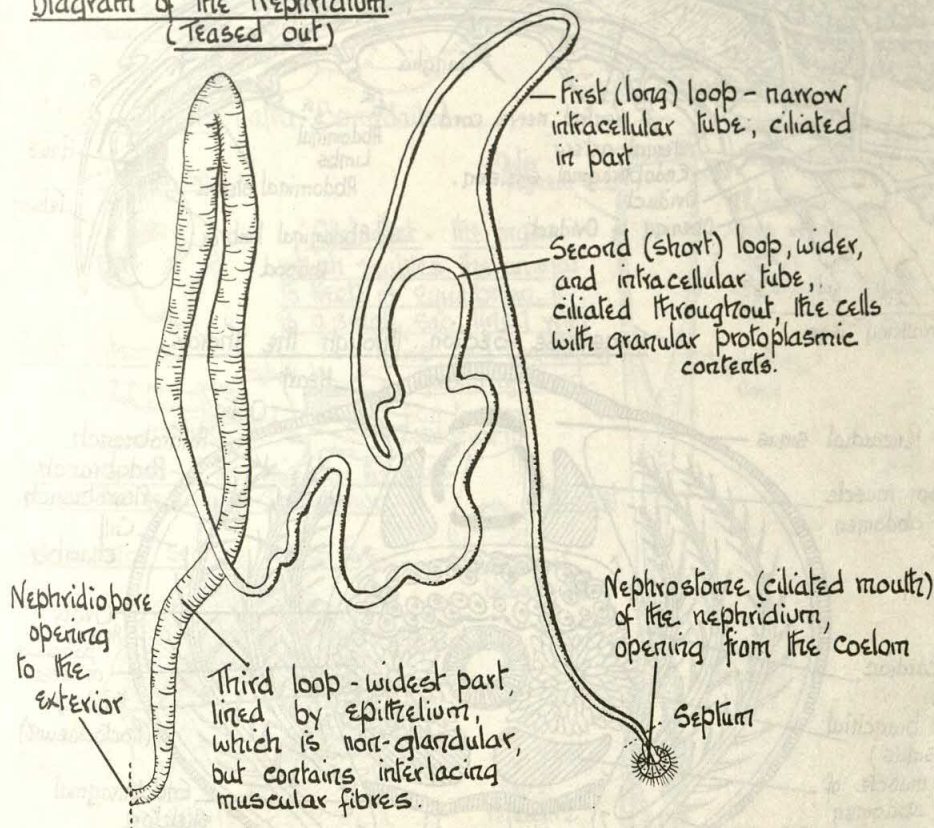 Diagram of the Nephridium.
(Teased out)
First (long) loop - narrow
intracellular tube, ciliated
in part
Second (short) loop, wider,
and intracellular tube,
ciliated throughout, the cells
with granular protoplasmic
contents.
Nephridiopore
opening
to the
exterior
Third loop - widest part,
lined by epithelium,
which is non-glandular,
but contains interlacing
muscular fibres
Nephrostome (ciliated mouth)
of the nephridium,
opening from the coelom
Septum